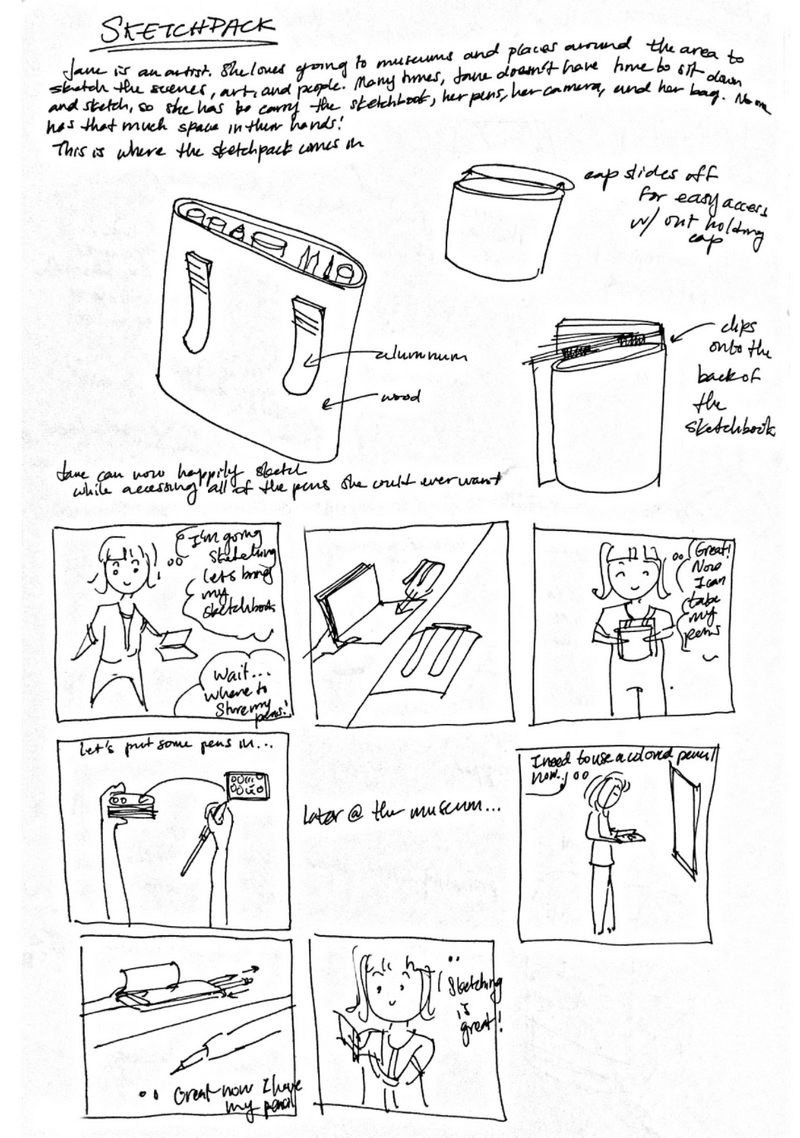 SKETCHPACK
Jane is an artist. She loves going to museums and places around the area to
sketch the scenes, art, and people. Many times, Jane doesn't have time to sit down
and sketch, so she has to carry the sketchbook, her pens, her camera, and her bag. No one
has that much space in their hands!
This is where the sketchpack comes in
cap slides off
for easy access
w/ out holding
cap
aluminum
wood
clips
onto the
back of
the
sketchbook
Jane can now happily sketch
while accessing all of the pens she could ever want
I'm going
sketching
let's bring
my
sketchbook
Wait...
where to
store my
pens!
Great!
Now
I can
take
my
pens
Let's put some pens in...
Later @ the museum...
I need to use a colored pencil
now..!
Great now I have
my pencil
Sketching
is
great!